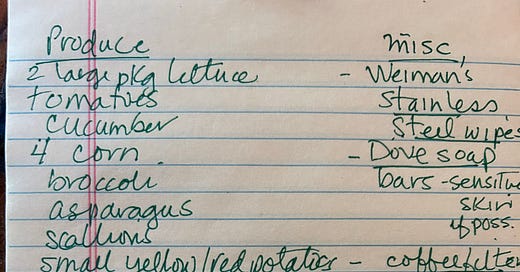 Produce
2 large pkg lettuce
tomatoes
cucumber
4 corn
broccoli
asparagus
scallions
small yellow/red potatoes
misc.
- Weiman's
Stainless
Steel wipes
- Dove soap
bars - sensitive
skin
if poss.
- coffee filter